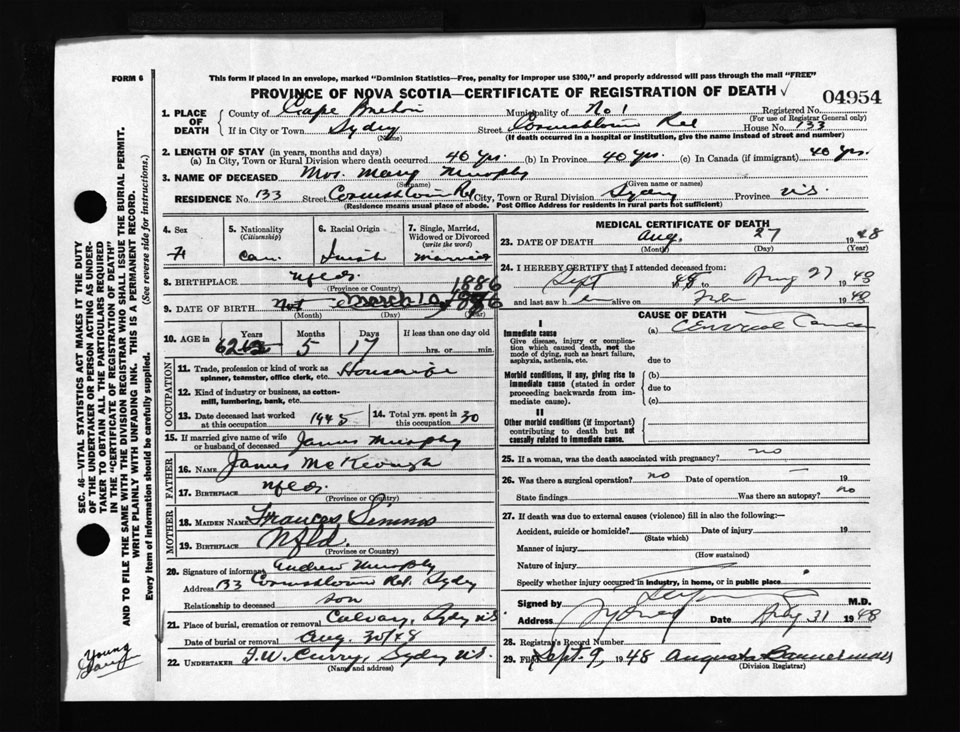 FORM 6
This form if placed in an envelope, marked "Dominion Statistics—Free, penalty for improper use $300," and properly addressed will pass through the mail "FREE"
PROVINCE OF NOVA SCOTIA—CERTIFICATE OF REGISTRATION OF DEATH
04954
1. PLACE OF DEATH
County of Cape Breton Municipality of No 1 Registered No.
(For use of Registrar General only)
If in City or Town Sydney Street Rd House No. 133
(Name) (If death occurred in a hospital or institution, give the name instead of street and number)
2. LENGTH OF STAY (in years, months and days)
(a) In City, Town or Rural Division where death occurred 40 yrs. (b) In Province 40 yrs. (c) In Canada (if immigrant) 40 yrs.
3. NAME OF DECEASED Mrs. Mary Murphy
(Surname) (Given name or names)
RESIDENCE No. 133 Street Rd City, Town or Rural Division Sydney Province N.S.
(Residence means usual place of abode. Post Office Address for residents in rural parts not sufficient)
4. Sex F
5. Nationality (Citizenship) Can.
6. Racial Origin Irish
7. Single, Married, Widowed or Divorced (write the word) Married
8. BIRTHPLACE Nfld.
(Province or Country)
1886
9. DATE OF BIRTH March 10
(Month) (Day) (Year)
10. AGE in Years Months Days If less than one day old
62 5 17 hrs. or min.
OCCUPATION
11. Trade, profession or kind of work as spinner, teamster, office clerk, etc. Housewife
12. Kind of industry or business, as cotton-mill, lumbering, bank, etc.
13. Date deceased last worked at this occupation 1945
14. Total yrs. spent in 30
15. If married give name of wife or husband of deceased James Murphy
FATHER
16. NAME James McKeough
17. BIRTHPLACE Nfld.
(Province or Country)
MOTHER
18. MAIDEN NAME Frances Simms
19. BIRTHPLACE Nfld.
(Province or Country)
20. Signature of informant Andrew Murphy
Address 133 Rd. Sydney
Relationship to deceased son
21. Place of burial, cremation or removal Calvary, Sydney N.S.
Date of burial or removal Aug. 30/48
22. UNDERTAKER T.W. Curry, Sydney N.S.
(Name and address)
MEDICAL CERTIFICATE OF DEATH
23. DATE OF DEATH Aug. 27 1948
(Month) (Day) (Year)
24. I HEREBY CERTIFY that I attended deceased from:
Sept 48 to Aug 27 1948
and last saw h er alive on 1948
CAUSE OF DEATH
I
Immediate cause
Give disease, injury or complication which caused death, not the mode of dying, such as heart failure, asphyxia, asthenia, etc.
(a) Cervical Cancer
due to
Morbid conditions, if any, giving rise to immediate cause (stated in order proceeding backwards from immediate cause).
(b)
due to
(c)
II
Other morbid conditions (if important) contributing to death but not causally related to immediate cause.
25. If a woman, was the death associated with pregnancy? no
26. Was there a surgical operation? no Date of operation — 19
State findings Was there an autopsy? no
27. If death was due to external causes (violence) fill in also the following:—
Accident, suicide or homicide? Date of injury 19
(State which)
Manner of injury
(How sustained)
Nature of injury
Specify whether injury occurred in industry, in home, or in public place
Signed by M.D.
Address Sydney Date Aug 31 1948
28. Registrar's Record Number
29. Filed Sept. 9, 1948 Augusta Bannerman
(Division Registrar)
SEC. 46—VITAL STATISTICS ACT MAKES IT THE DUTY OF THE UNDERTAKER OR PERSON ACTING AS UNDERTAKER TO OBTAIN ALL THE PARTICULARS REQUIRED IN THE "CERTIFICATE OF REGISTRATION OF DEATH" AND TO FILE THE SAME WITH THE DIVISION REGISTRAR WHO SHALL ISSUE THE BURIAL PERMIT.
WRITE PLAINLY WITH UNFADING INK. THIS IS A PERMANENT RECORD.
Every item of information should be carefully supplied. (See reverse side for instructions.)
Young